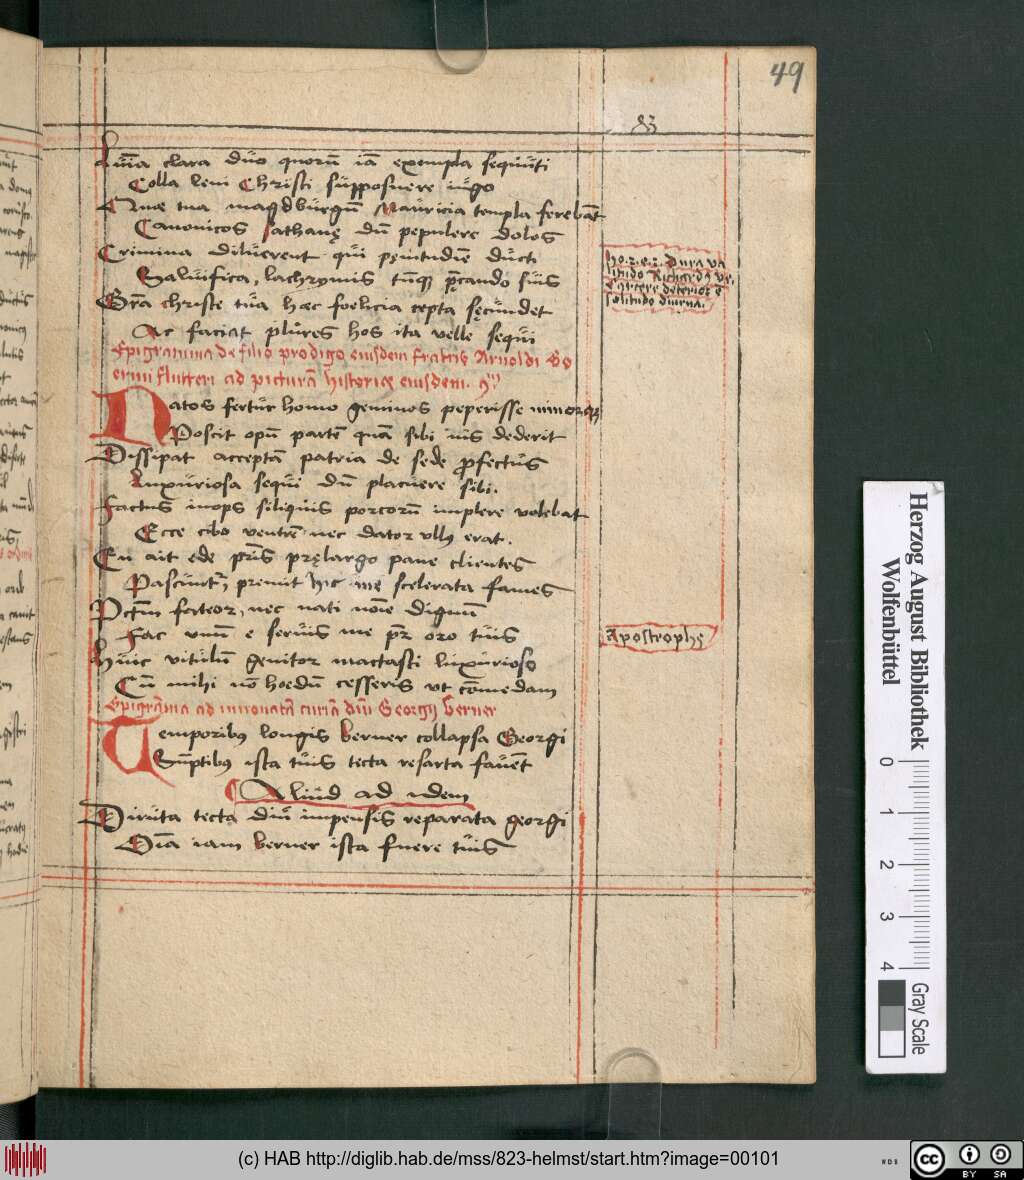 49
83
Luīa clara duo quorū iā exempla sequuti
Colla leui Christi supposuere iugo
Quae tua magdburgū Mauricia templa ferebāt
Canonicos sathanę dū pepulere dolos
Crimina diluerent qui pęnitudīe ducti
Saluifica, lachrymis tūqꝫ p̄cando suis
Grā christe tua haec foelicia cepta sęcundet
Ac faciat plures hos ita velle sequi
Epigramma de filio prodigo eiusdem fratris Arnoldi Bo
ad picturā historiae eiusdem.
Natos fertur homo geminos peperisse minorqꝫ
Poscit opū partē quā sibi iūs dederit
Dissipat acceptā patria de sede ꝓfectus
Luxuriosa sequi dū placuere sibi.
Factus inops siliquis porcorū implere volebat
Ecce cibo ventrē nec dator ullꝰ erat.
En ait ęde pr̄is pręlargo pane clientes
Pascūtr, premit hic mę scelerata fames
Pctm̄ fateor, nec nati noīe dignū
Fac unū e seruis me pr̄ oro tuis
Huic vitulū genitor mactasti luxurioso
Cū mihi nō hoedū cesseris ut cōmedam
Epigrāma ad innouatā curiā dm̄ Georgij Berner
Temporibꝰ longis berner collapsa Georgi
Sūptibꝰ ista tuis tecta resarta fauēt
Aliud ad idem
Diruta tecta diū impensis reparata georgi
Oīa iam berner ista fuere tuis
Dura va
litudo Richardi
carcere deterior e
solitudo diurna.
Apostrophę
Herzog August Bibliothek
Wolfenbüttel
0 1 2 3 4
Gray Scale
(c) HAB http://diglib.hab.de/mss/823-helmst/start.htm?image=00101
WDB
cc
BY SA